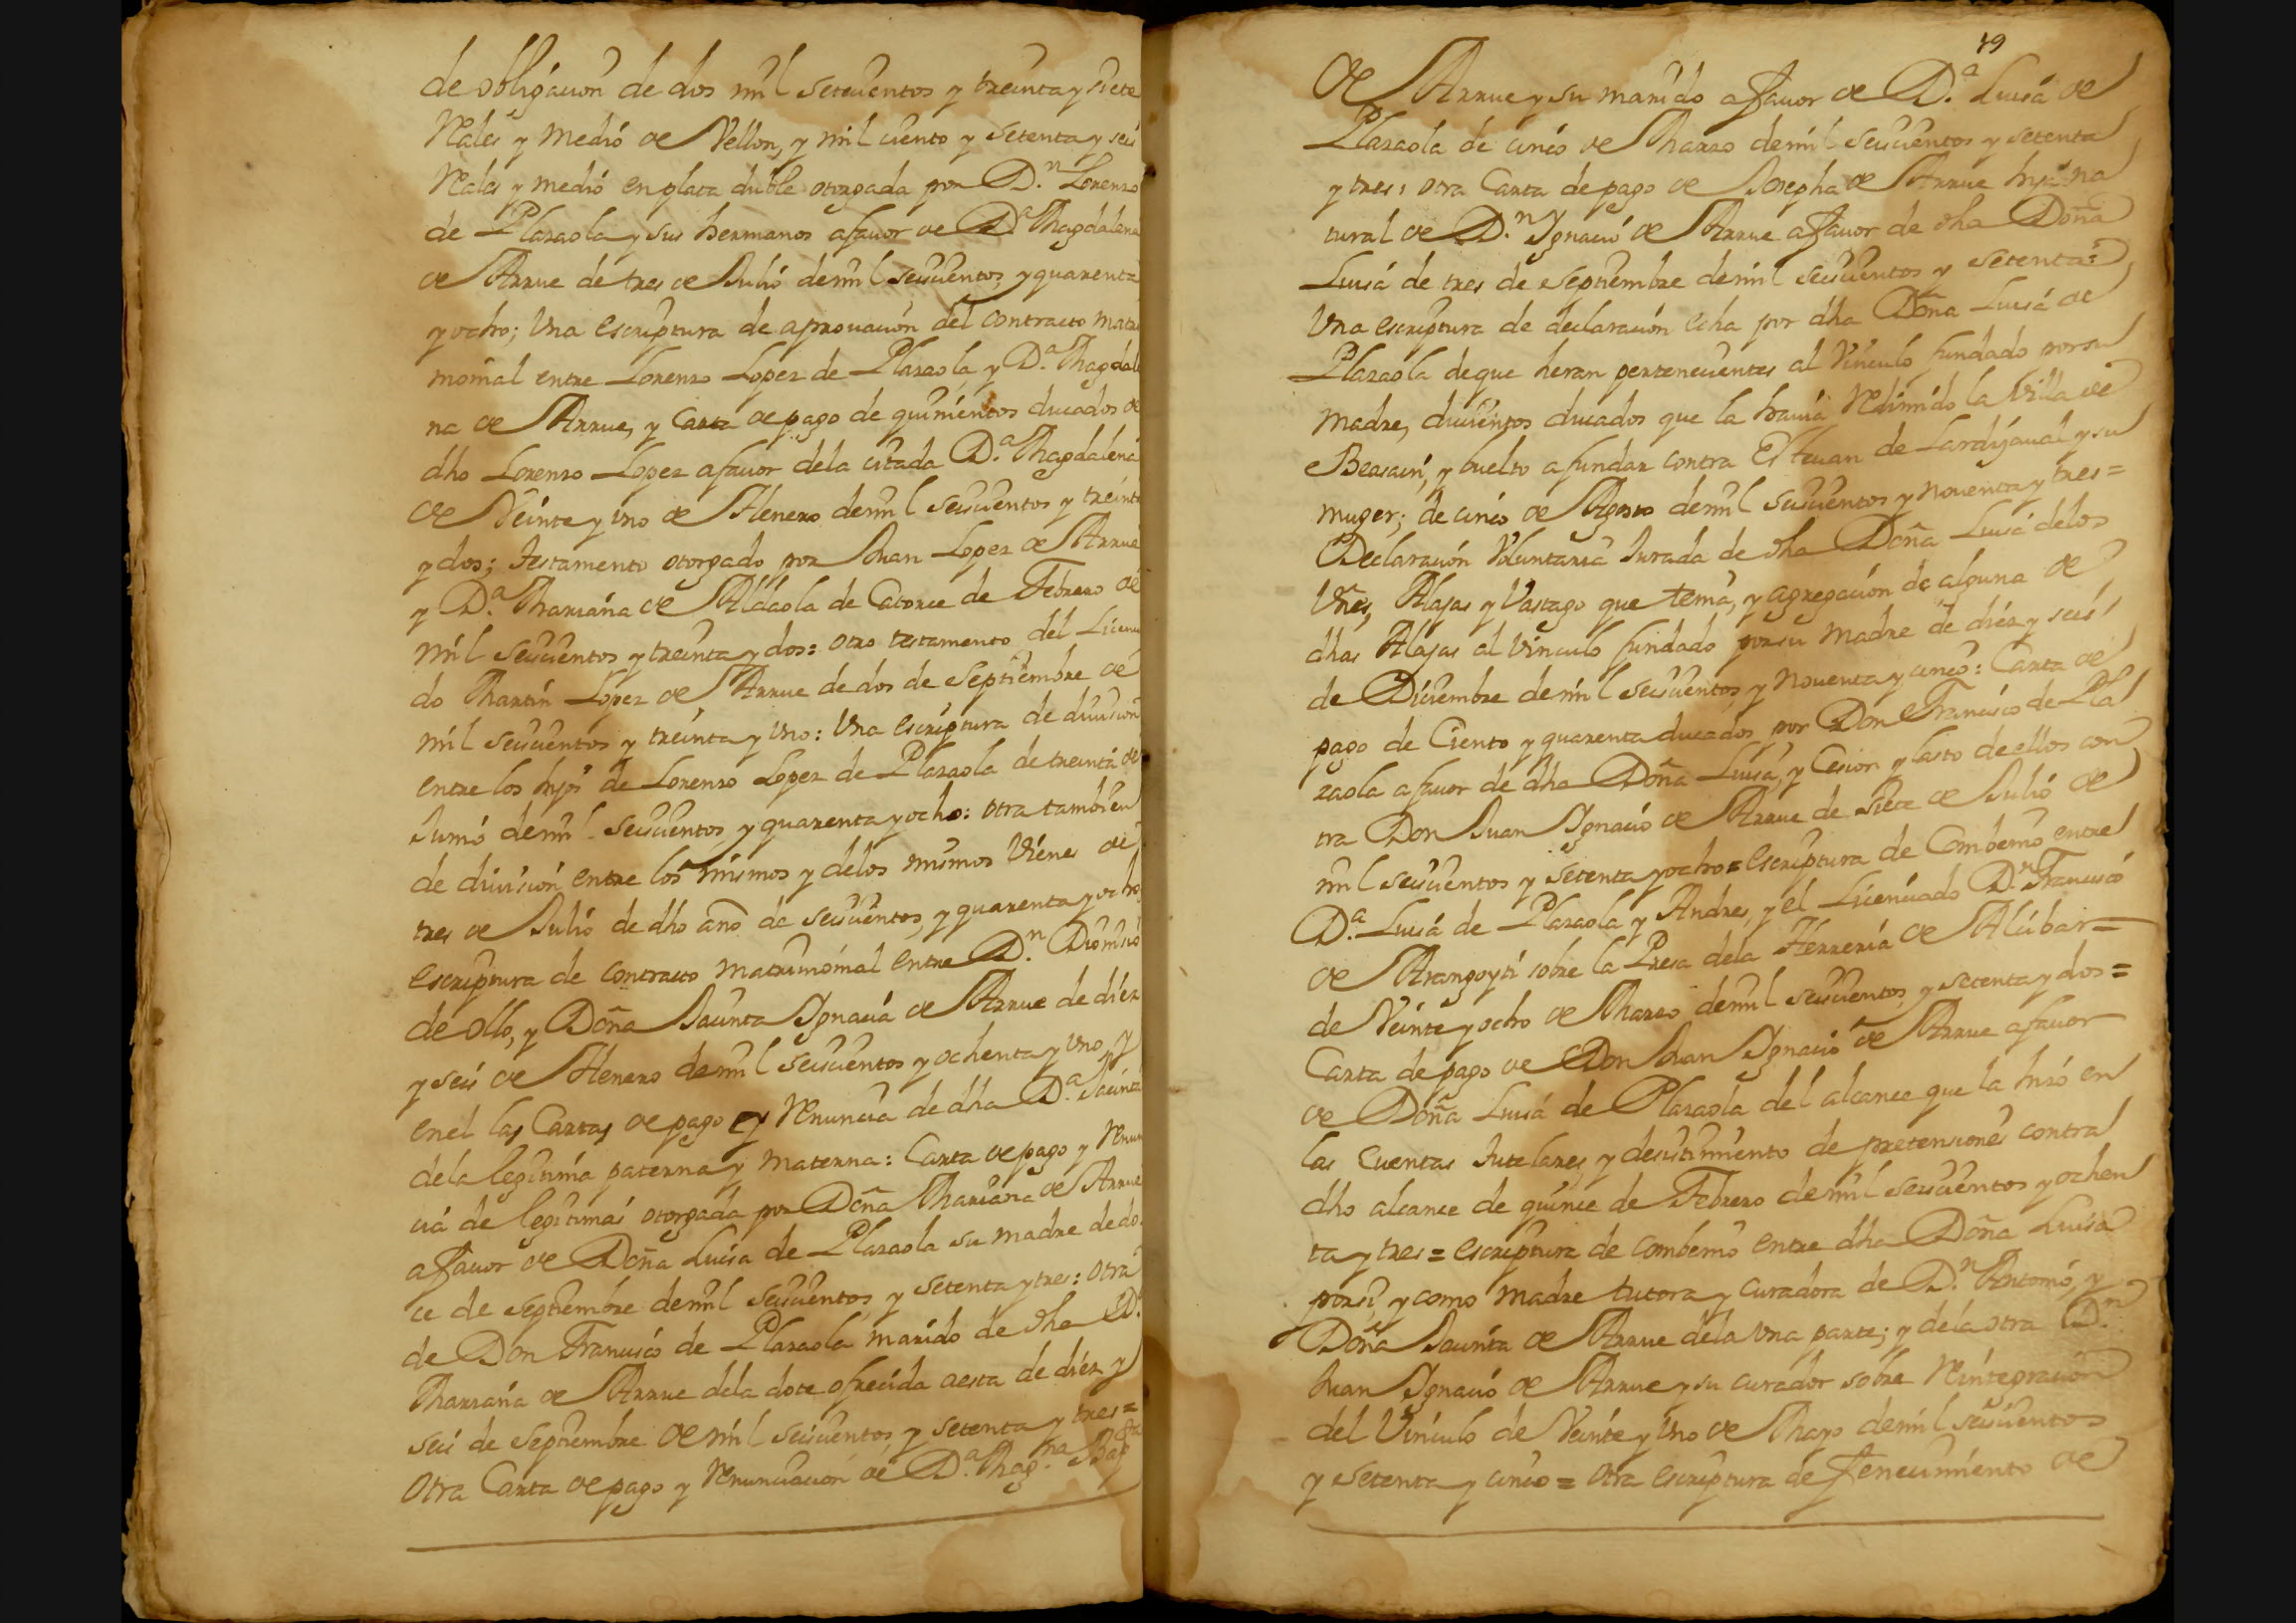 de obligacion de dos mil setecientos y treinta y siete
Rales y medio de Vellon, y mil ciento y setenta y seis
Rales y medio en plata duble otorgada por D.n Lorenzo
de Plazaola y sus hermanos afavor de D.a Magdalena
de Arrue de tres de Julio demil seiscientos, y quarenta
y ocho; Una escriptura de aprouacion del contracto matri
monial entre Lorenzo Lopez de Plazaola y D.a Magdale
na de Arrue, y Carta de pago de quinientos ducados de
dho Lorenzo Lopez afauor dela citada D.a Magdalena
de Veinte y uno de Henero demil seiscientos y treinta
y dos; testamento otorgado por Juan Lopez de Arrue
y D.a Mariana de Aldaola de Catorce de Febrero de
mil seiscientos y treinta y dos: otro testamento del Licencia
do Martin Lopez de Arrue de dos de Septiembre de
mil seiscientos y treinta y uno: Una escriptura de diuision
entre los hijos de Lorenzo Lopez de Plazaola de treinta de
Junio demil seiscientos, y quarenta y ocho: otra tambien
de diuision entre los mismos y delos mismos Vienes de
tres de Julio de dho año de seiscientos, y quarenta y ocho
escriptura de contracto matrimonial entre D.n Dionisio
de ollo, y Doña Jacinta Ignacia de Arrue de diez
y seis de Henero demil seiscientos y ochenta y uno, y
enel las Cartas de pago y Renuncia de dha D.a Jacinta
dela legitima paterna y materna: Carta de pago y Renun
cia de legitimas otorgada por Doña Mariana de Arrue
afauor de Doña Luisa de Plazaola su madre de do
ce de septiembre demil seiscientos y setenta y tres: otra
de Don Francisco de Plazaola marido de dha D.a
Mariana de Arrue dela dote ofrecida aesta de diez y
seis de septiembre de mil seiscientos y setenta y tres=
otra Carta de pago y renunciacion de D.a Mag.na Bap.ta
49
de Arrue y su marido afauor de D.a Luisa de
Plazaola de cinco de Marzo demil seiscientos y setenta
y tres: otra Carta de pago de Josepha de Arrue hija na
tural de D.n Ignacio de Arrue afauor de dha Doña
Luisa de tres de septiembre demil seiscientos y setenta:
Una escriptura de declaracion echa por dha Doña Luisa de
Plazaola deque heran pertenecientes al Vinculo fundado por su
madre, ducientos ducados que la hauia Redimido la Villa de
Beasain, y buelto afundar contra Esteuan de Lardizaual y su
muger; de cinco de Agosto demil seiscientos y nouenta y tres=
Declaracion Voluntaria Jurada de dha Doña Luisa delos
Vñes, Alajas y Vastago que tenia, y agregacion de alguna de
dhas Alajas al Vinculo fundado por su madre de diez y seis
de Diciembre demil seiscientos, y Nouenta y cinco: Carta de
pago de Ciento y quarenta ducados por Don Francisco de Pla
zaola afauor de dha Doña Luisa, y Cesion y lasto de ellos con
tra Don Juan Ignacio de Arrue de Siete de Julio de
mil seiscientos y setenta y ocho= escriptura de Combenio entre
D.a Luisa de Plazaola y Andres, y el Licenciado D.n Francisco
de Arangoyti sobre la Presa dela Herreria de Alubar=
de Veinte y ocho de Marzo demil seiscientos, y setenta y dos=
Carta de pago de Don Juan Ignacio de Arrue afauor
de Doña Luisa de Plazaola del alcance que la hizo en
las Cuentas tutelares y desistimiento de pretensiones contra
dho alcance de quince de Febrero demil seiscientos y ochen
ta y tres= escriptura de Combenio entre dha Doña Luisa
por si, y como madre tutora y curadora de D.n Antonio, y
Doña Jacinta de Arrue dela una parte; y dela otra D.n
Juan Ignacio de Arrue y su curador sobre Reintegracion
del Vinculo de Veinte y uno de Mayo demil seiscientos
y setenta y cinco= otra escriptura de fenecimiento de